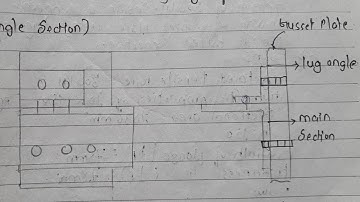 ngle Section)
Gusset Plate
lug angle
main
Section